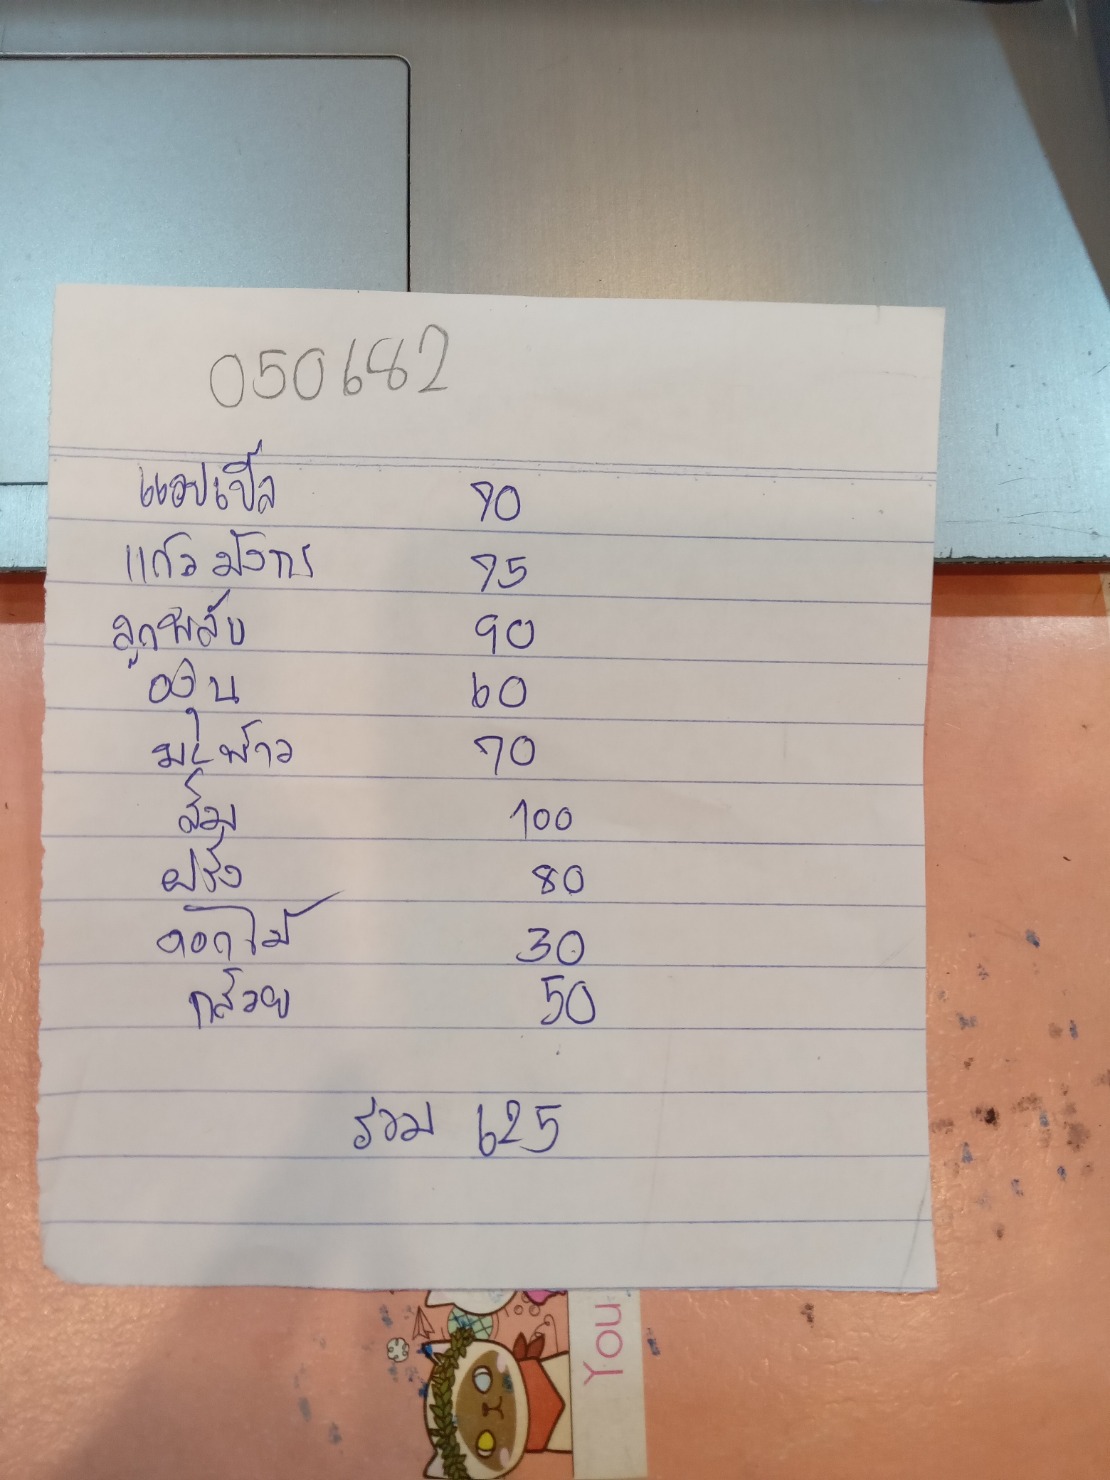 050682
แอปเปิ้ล 70
แก้วมังกร 75
ลูกพลับ 90
องุ่น 60
มะพร้าว 70
ส้ม 100
ฝรั่ง 80
ดอกไม้ 30
กล้วย 50
รวม 625
You